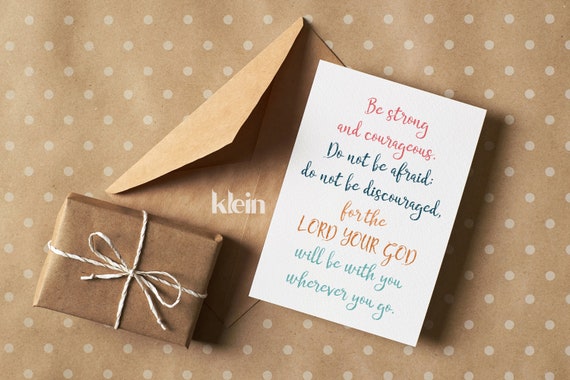 klein
Be strong
and courageous.
Do not be afraid;
do not be discouraged,
for the
LORD YOUR GOD
will be with you
wherever you go.